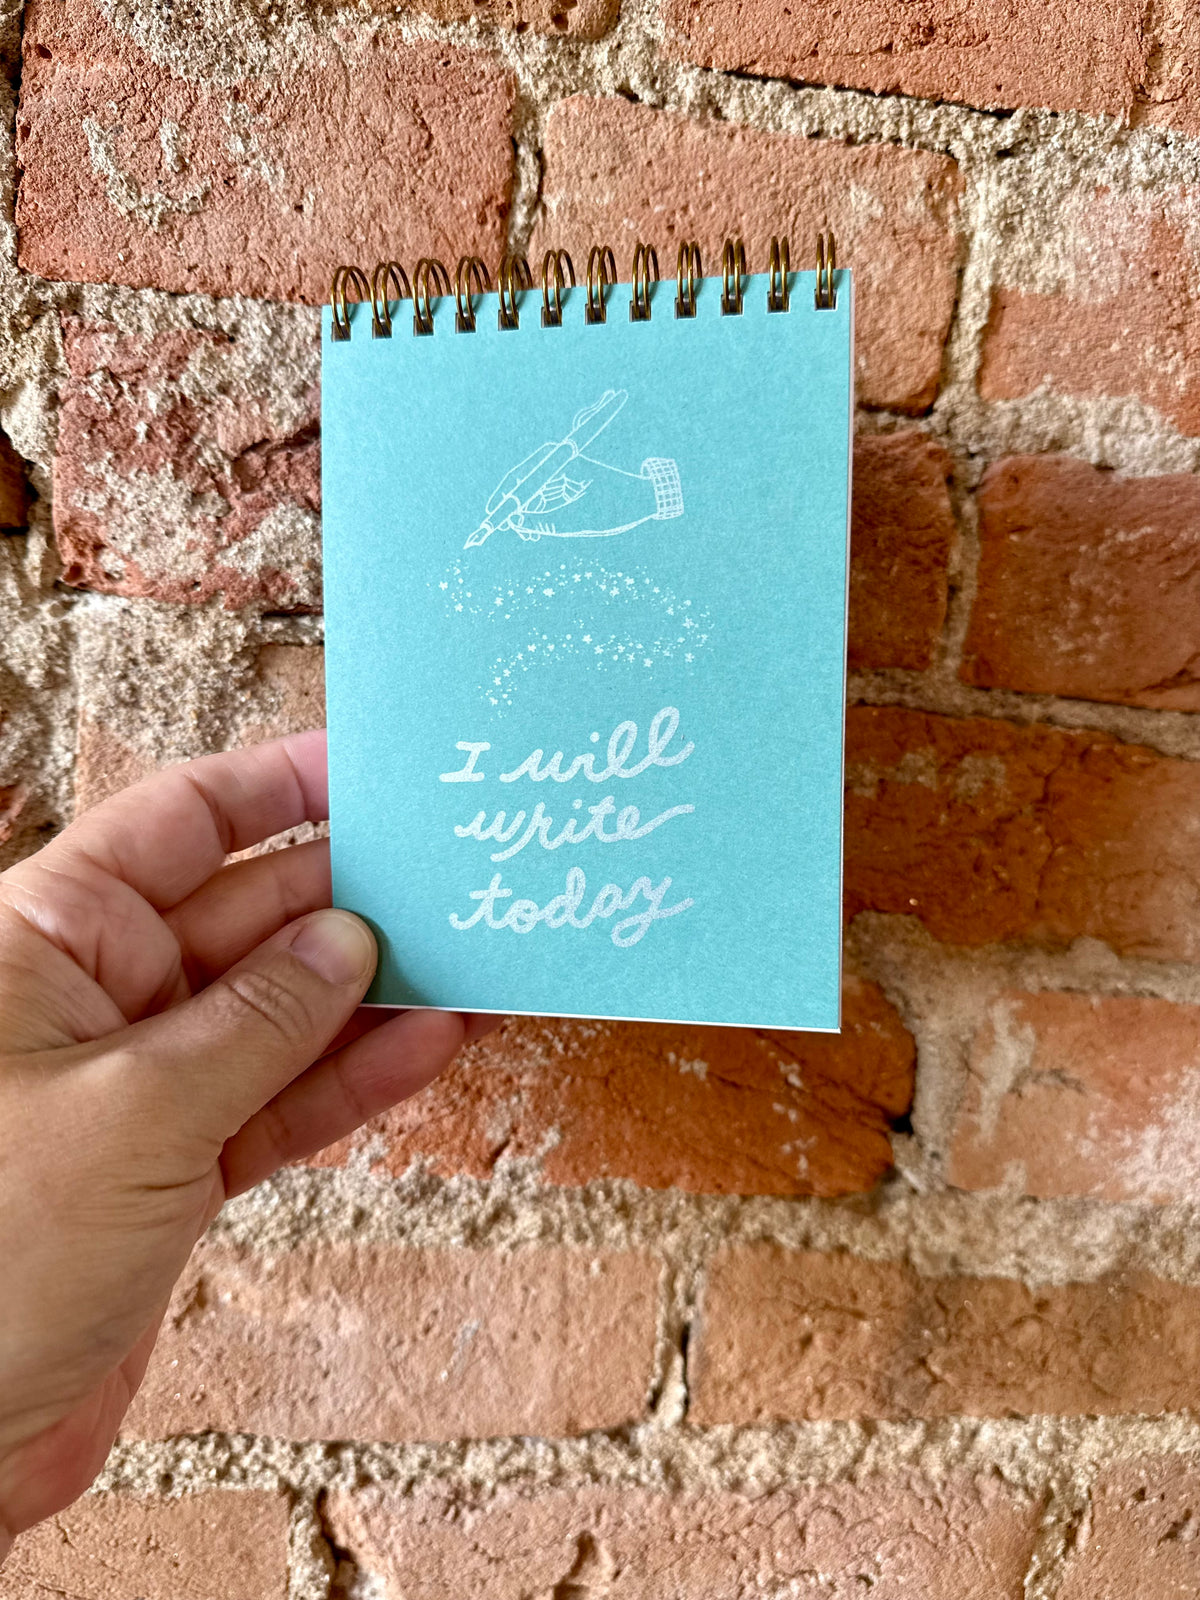 I will
write
today